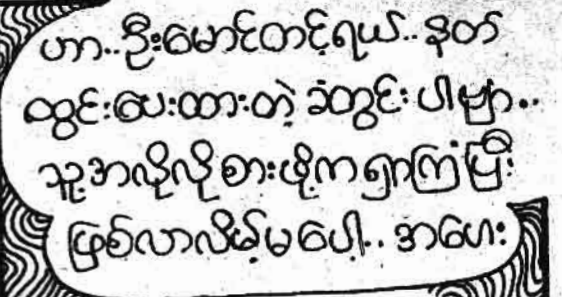 ဟာ..ဦးမောင်တင့်ရယ်..နတ်
ထွင်းပေးထားတဲ့ ခံတွင်းပါဗျာ..
သူ့အလိုလိုစားဖို့က ရှာကြံပြီး
ဖြစ်လာလိမ့်မပေါ့..အဟေး